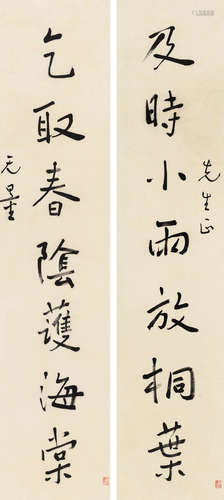 及時小雨放桐葉
先生正
乞取春陰護海棠
无量